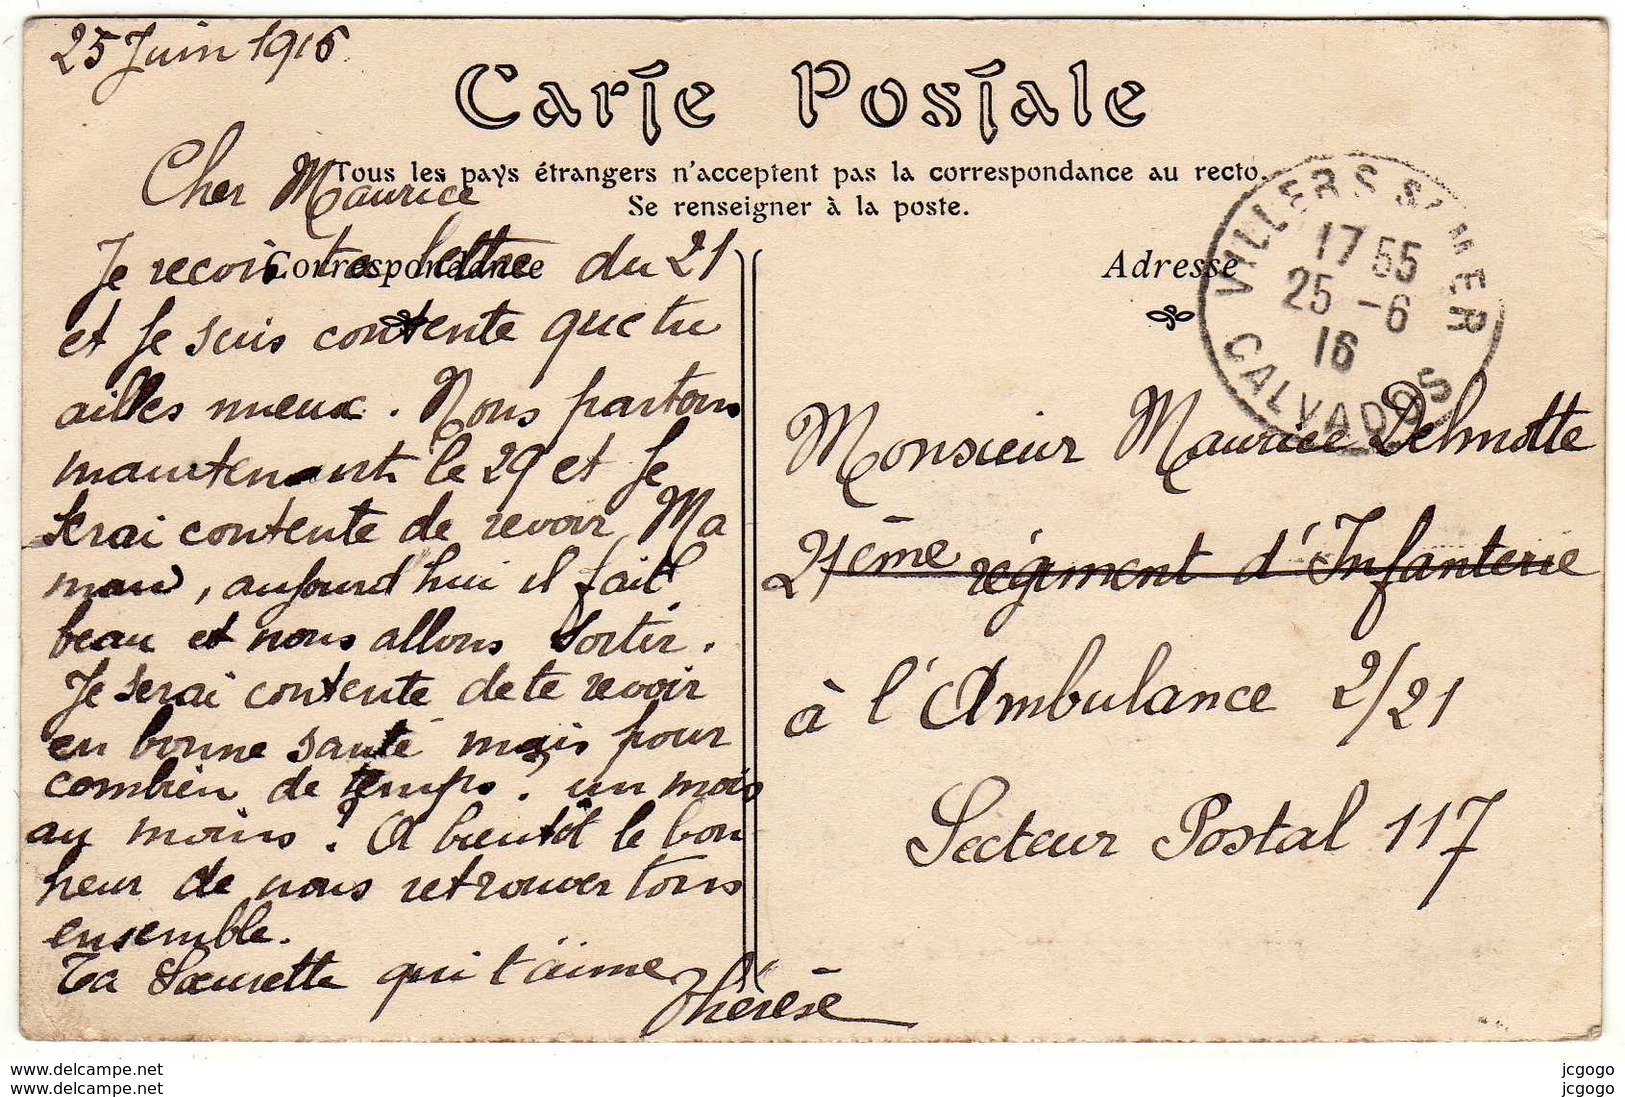 25 Juin 1916
Carte Postale
Tous les pays étrangers n'acceptent pas la correspondance au recto.
Se renseigner à la poste.
Correspondance
Cher Maurice
Je recois ta lettre du 21
et je suis contente que tu
ailles mieux. Nous partons
maintenant le 29 et je
serai contente de revoir Ma
man, aujourd'hui il fait
beau et nous allons sortir.
Je serai contente de te revoir
en bonne santé mais pour
combien de temps? un mois
au moins? A bientôt le bon
heur de nous retrouver tous
ensemble.
Ta Soeurette qui t'aime
Thérèse
Adresse
VILLERS S/MER
17 55
25 -6
16
CALVADOS
Monsieur Maurice Delmotte
régiment d'Infanterie
à l'Ambulance 2/21
Secteur Postal 117
jcgogo
www.delcampe.net
jcgogo
www.delcampe.net